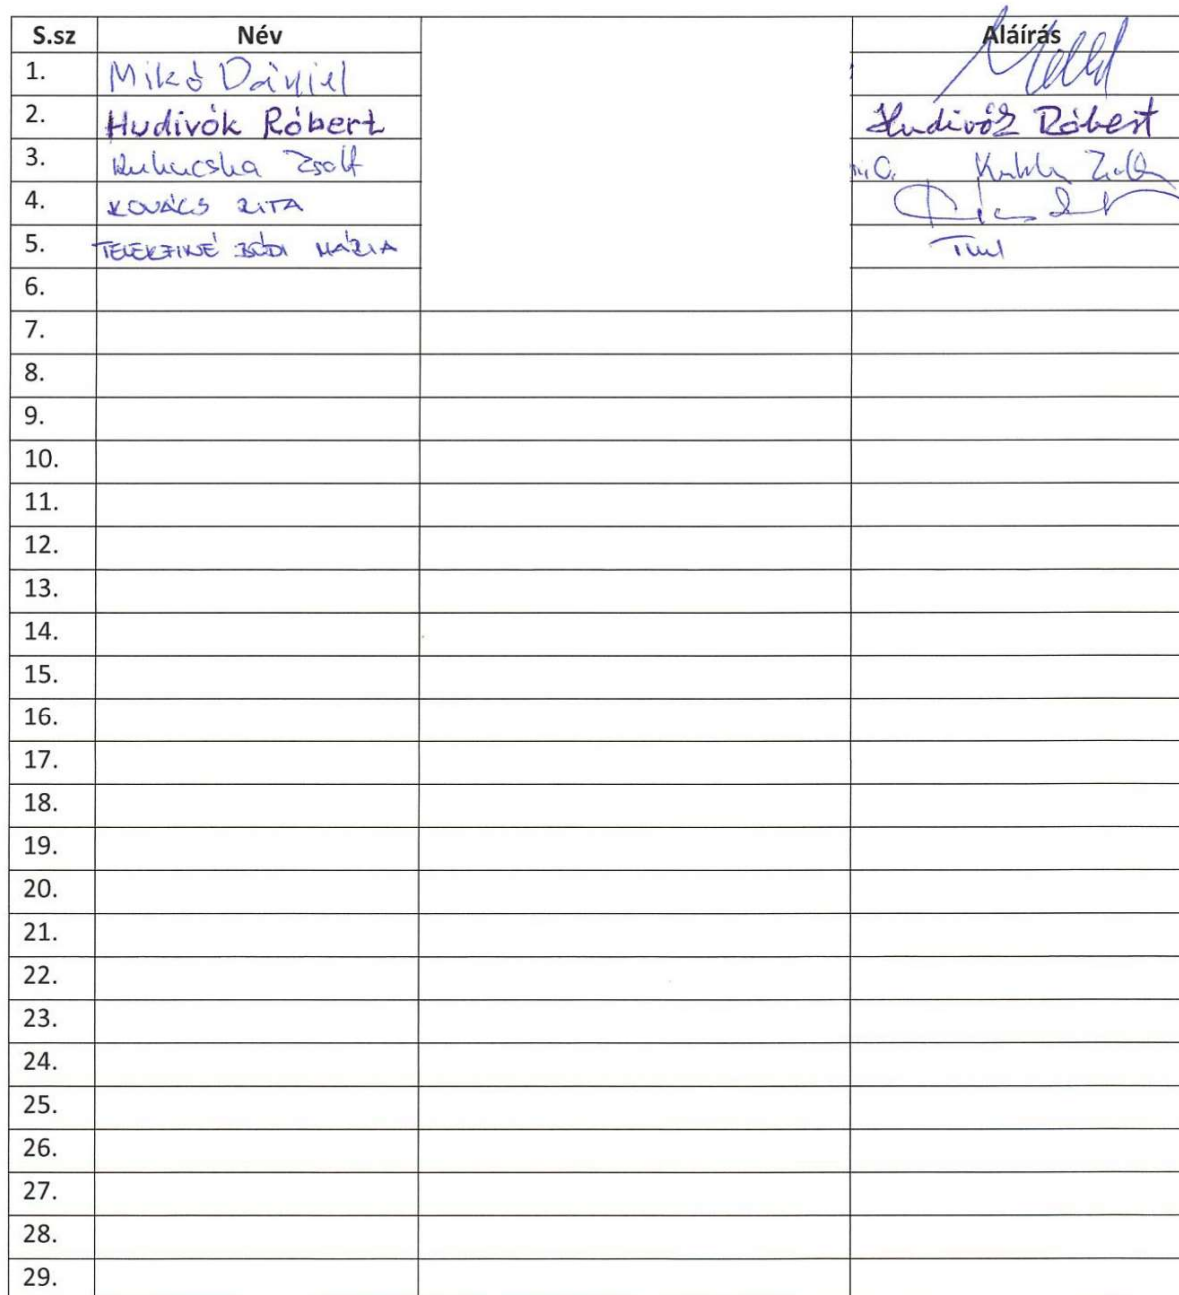 S.sz Név Aláírás
1. Mikó Dániel
2. Hudivók Róbert Hudivók Róbert
3. Kukucska Zsolt
4. KOVÁCS RITA
5. MÁRIA
6.
7.
8.
9.
10.
11.
12.
13.
14.
15.
16.
17.
18.
19.
20.
21.
22.
23.
24.
25.
26.
27.
28.
29.